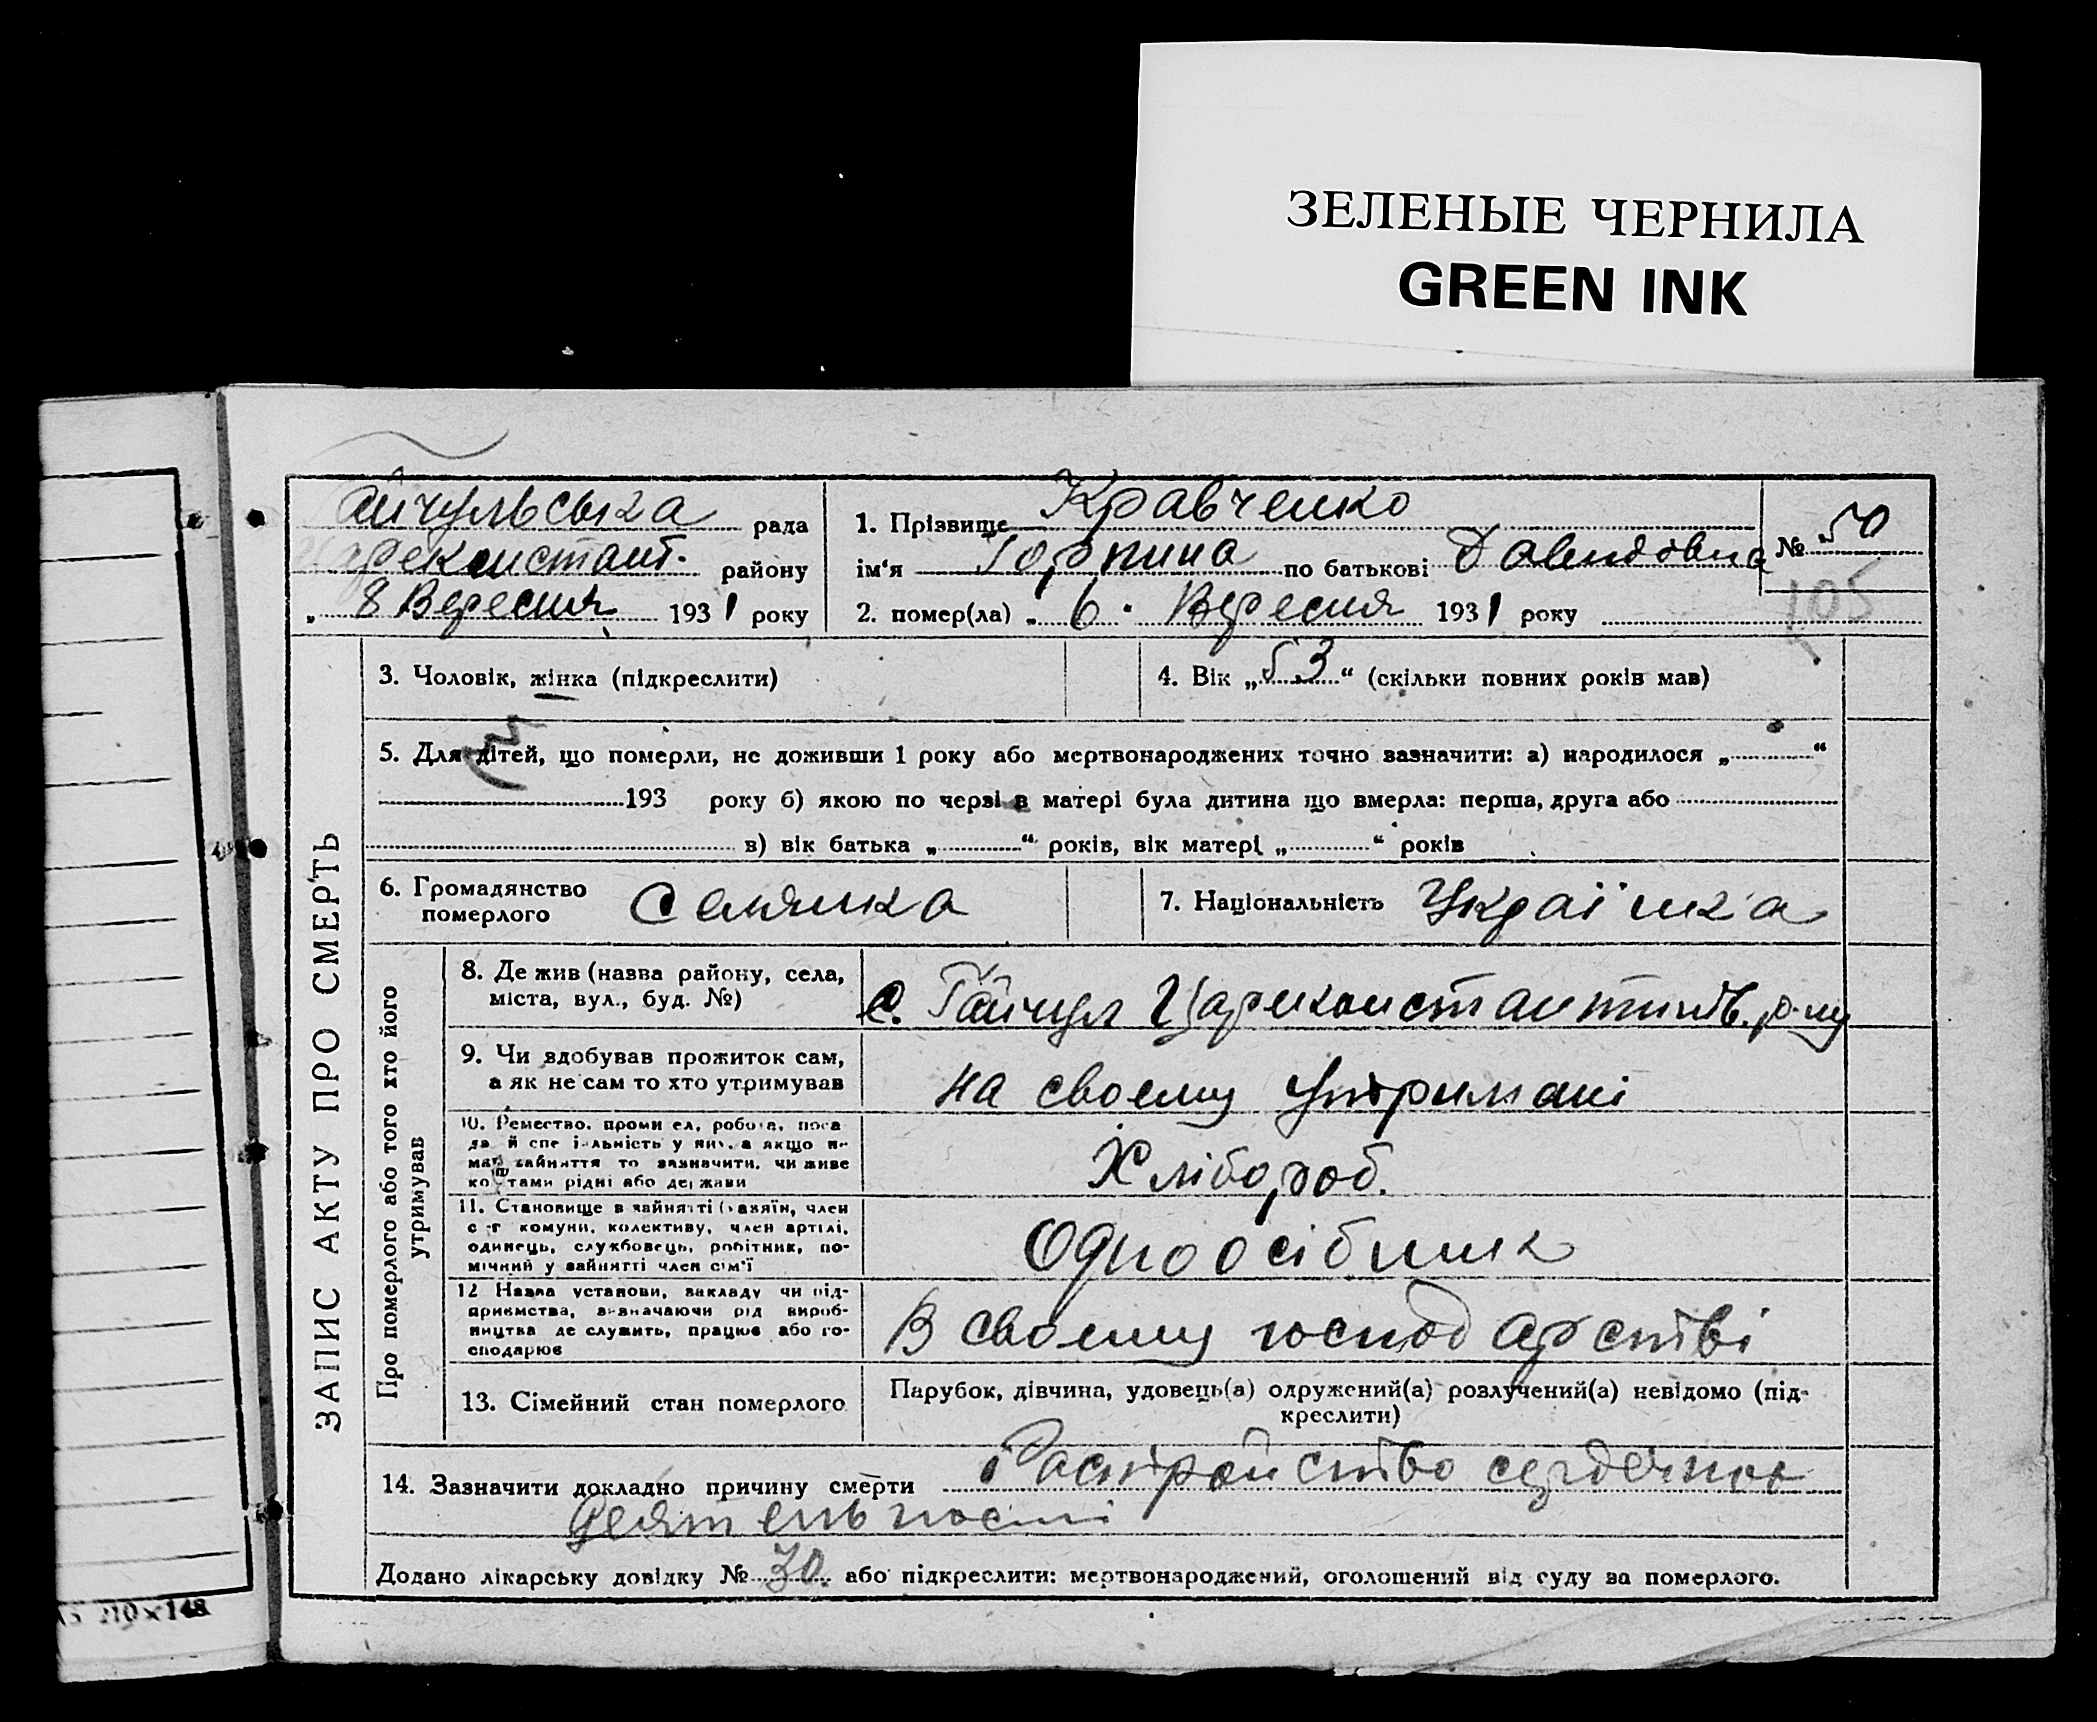 ЗЕЛЕНЫЕ ЧЕРНИЛА
GREEN INK
Гайчульська рада
Цареконстант. району
„ 8 Вересня 1931 року
1. Прізвище Кравченко
ім'я Горпина по батькові Давидовна
№ 50
105
2. помер(ла) „ 6 " Вересня 1931 року
ЗАПИС АКТУ ПРО СМЕРТЬ
3. Чоловік, жінка (підкреслити)
4. Вік „ 53 “ (скільки повних років мав)
5. Для дітей, що померли, не доживши 1 року або мертвонароджених точно зазначити: а) народилося „ “
193 року б) якою по черзі в матері була дитина що вмерла: перша, друга або
в) вік батька „ “ років, вік матері „ “ років
6. Громадянство померлого Селянка
7. Національність Українка
Про померлого або того хто його утримував
8. Де жив (назва району, села,
міста, вул., буд. №)
с. Гайчул Цареконстантинів. р-ну
9. Чи здобував прожиток сам,
а як не сам то хто утримував
на своему утримані
10. Ремество, промисел, робота, поса
да й спеціальність у них, а якщо не
має зайняття то зазначити, чи живе
коштами рідні або держави
Хлібороб.
11. Становище в зайнятті (хазяїн, член
с-г комуни, колективу, член артілі,
одинець, службовець, робітник, по-
мічний у зайнятті член сім'ї
Одноосібник
12 Назва установи, закладу чи під-
приємства, зазначаючи рід вироб-
ництва де служить, працює або го-
сподарює
В своему господарстві
13. Сімейний стан померлого
Парубок, дівчина, удовець(а) одружений(а) розлучений(а) невідомо (під-
креслити)
14. Зазначити докладно причину смерти Растройство сердечной
деятельности
Додано лікарську довідку № 30. або підкреслити: мертвонароджений, оголошений від суду за померлого.
210 x 148